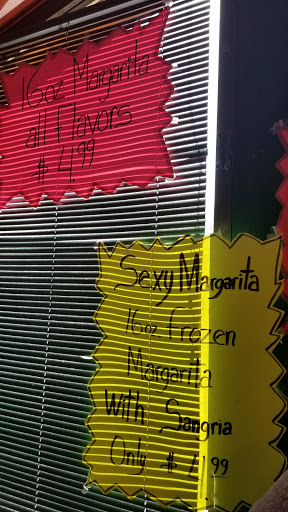 16oz Margarita
all Flavors
$ 4.99
Sexy Margarita
16oz frozen
Margarita
With Sangria
Only $ 4.99